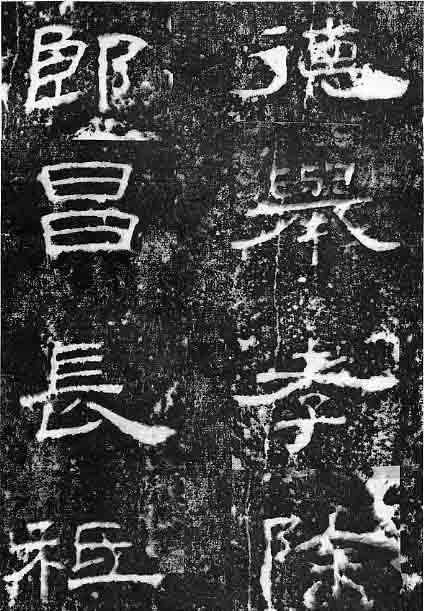 德舉孝除
郎昌長祗